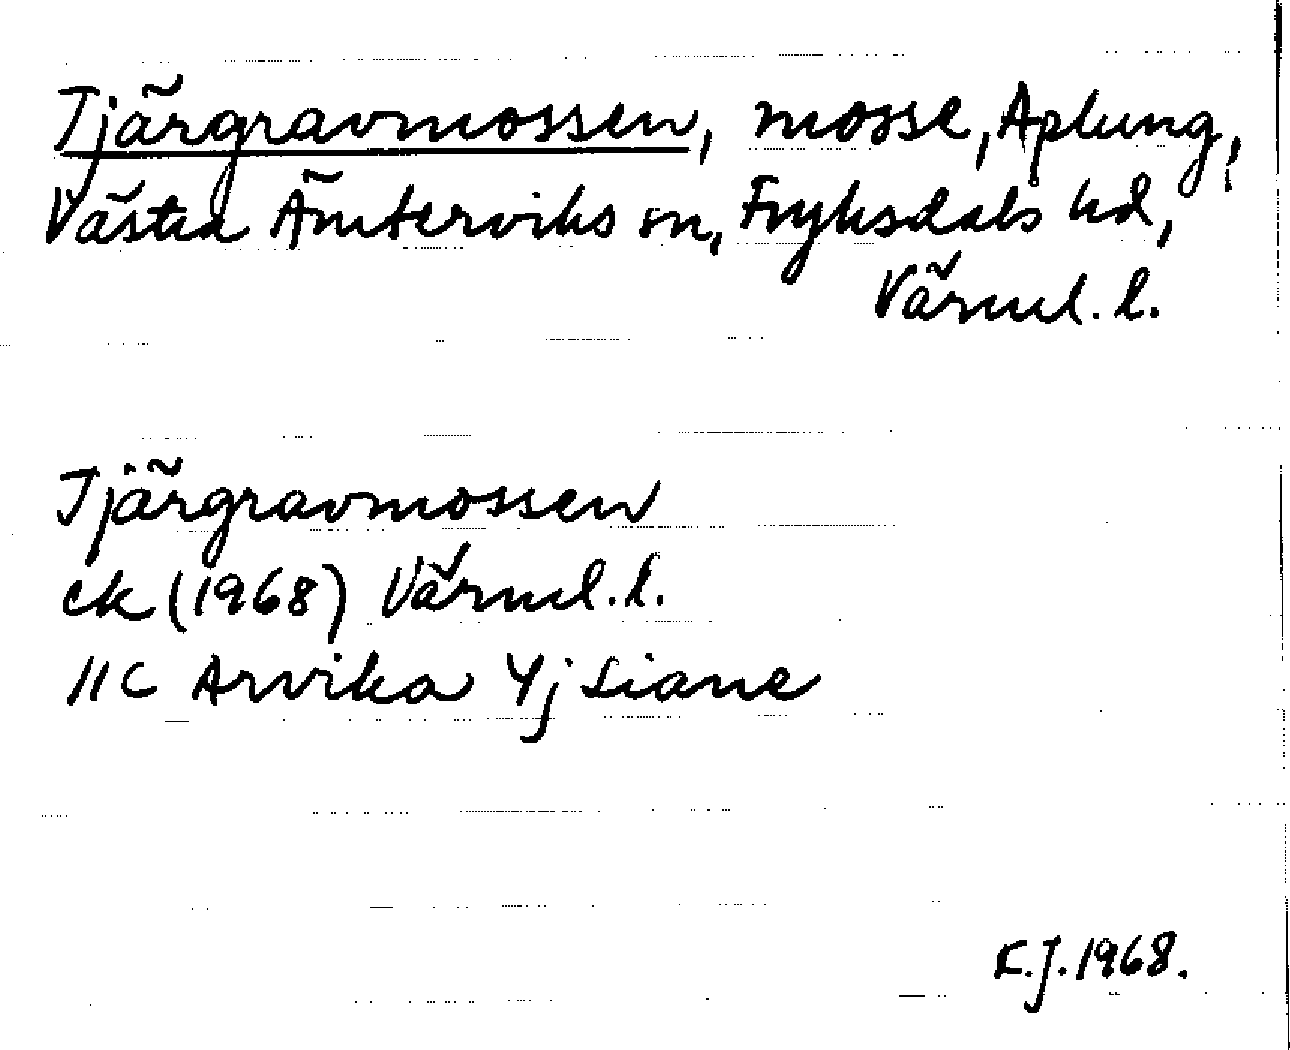 Tjärgravmossen, mosse, Aplung,
Västra Ämterviks sn, Fryksdals hd,
Värml. l.
Tjärgravmossen
ek (1968) Värml. l.
11C Arvika Yj Liane
K.J. 1968.